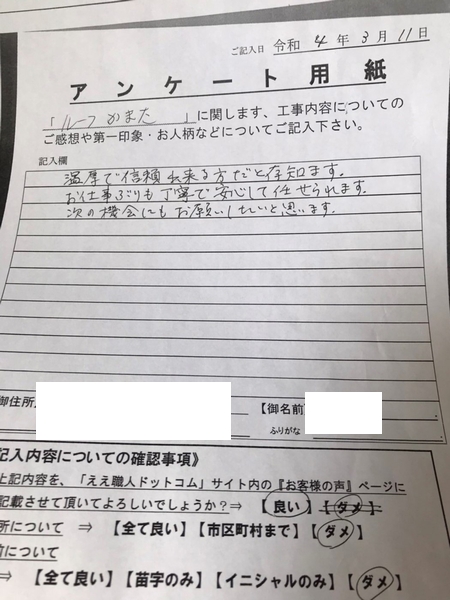 ご記入日 令和 4 年 3 月 11 日
アンケート用紙
「ルーフかまた 」に関します、工事内容についての
ご感想や第一印象・お人柄などについてご記入下さい。
記入欄
温厚で信頼出来る方だと存知ます。
お仕事ぶりも丁寧で安心して任せられます。
次の機会にもお願いしたいと思います。
御住所
【御名前】
ふりがな
記入内容についての確認事項》
上記内容を、「ええ職人ドットコム」サイト内の『お客様の声』ページに
記載させて頂いてよろしいでしょうか?⇒ 【良い】【ダメ】
所について ⇒ 【全て良い】【市区町村まで】【ダメ】
前について
⇒ 【全て良い】【苗字のみ】【イニシャルのみ】【ダメ】